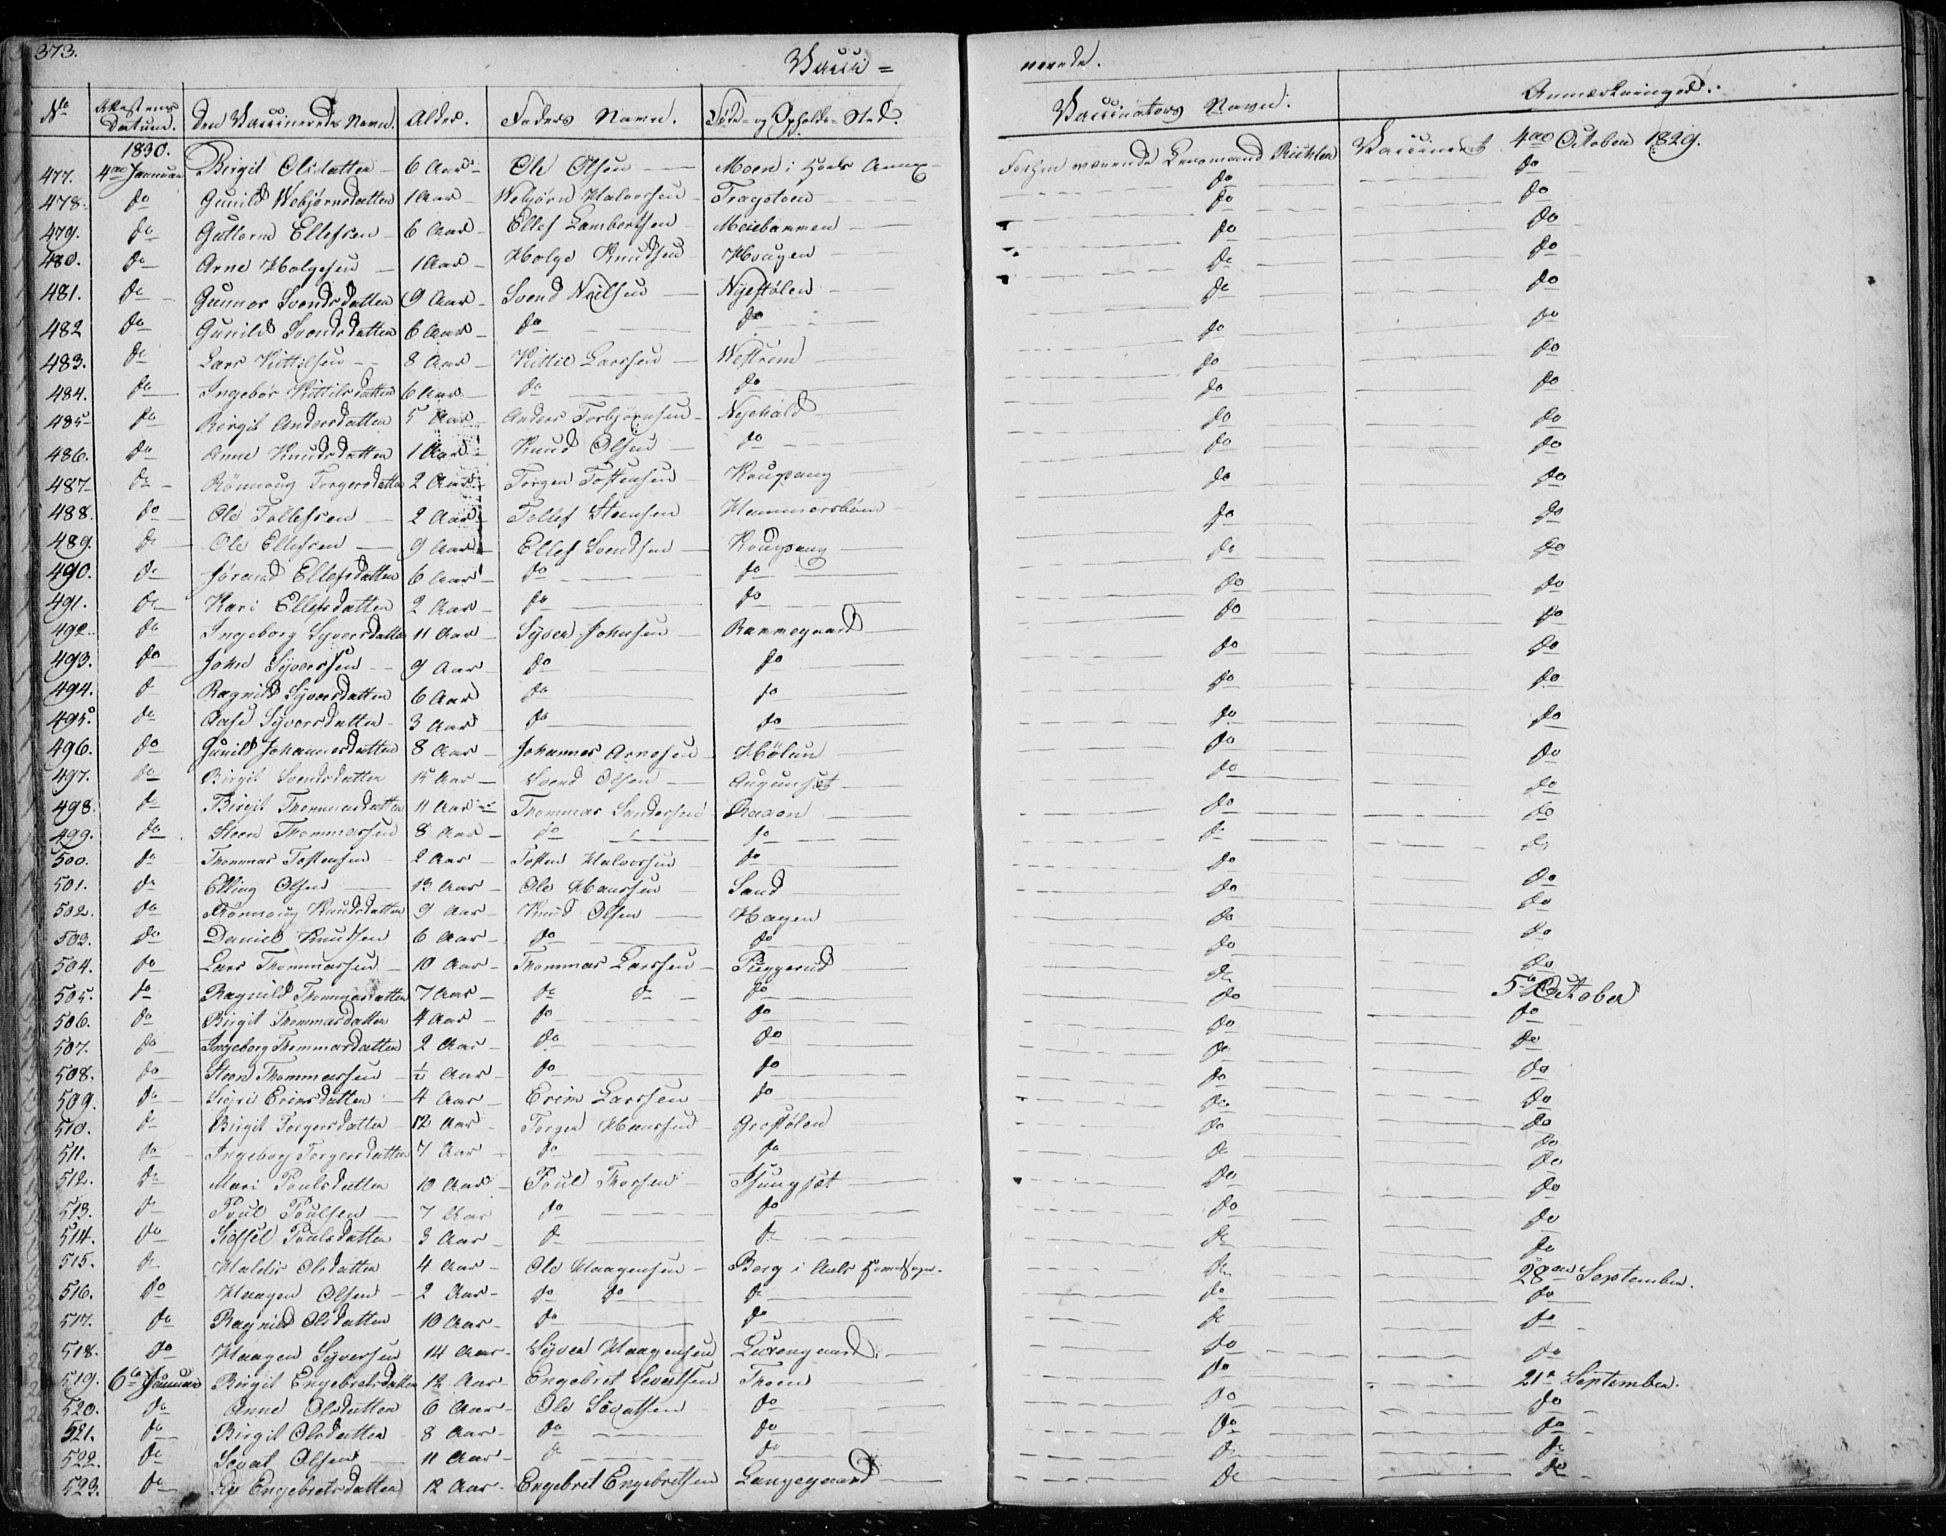 373. Vacci= nerede.
No Attestens Datum. Den Vaccineredes Navn. Alder. Faders Navn. Føde- og Opholds-Sted. Vaccinators Navn. Anmærkninger.
1830.
477. 4de Januar Birgit Olsdatter 6 Aar Ole Olsen Moen i Hols Annex Forhen værende Lensmand Vaccineret 4de October 1829.
478. do Gunild Webjørnsdatter 1 Aar Webjørn Halvorsen do do
479. do Guttorm Ellefsen 6 Aar Ellef Lambertsen do do
480. do Arne Holgesen 1 Aar Holge Knudsen Hougen do do
481. do Gunnor Svendsdatter 9 Aar Svend Neilsen Nyestølen do do
482 do Gunild Svendsdatter 6 Aar do do do do
483. do Lars Kittilsen 8 Aar Kittil Larssen Westrem do do
484. do Ingebor Kittilsdatter 6 Aar do do do do
485 do Birgit Andersdatter 5 Aar Anders Torbjørnsen do do
486. do Anne Knudsdatter 1 Aar Knud Olsen do do do
487 do Rønnoug Torgersdatter 2 Aar Torger Tostensen do do
488. do Ole Tollefsen 2 Aar Tollef Steensen Hammersbøen do do
489. do Ole Ellefsen 9 Aar Ellef Svendsen do do
490. do Jørand Ellefsdatter 6 Aar do do do do
491. do Kari Ellefsdatter 2 Aar do do do do
492. do Ingeborg Syversdatter 11 Aar Syver Johnsen Rammegaard do do
493. do John Syversen 9 Aar do do do do
494. do Ragnild Syversdatter 6 Aar do do do do
495. do Aase Syversdatter 3 Aar do do do do
496. do Gunild Johannesdatter 8 Aar Johannes Arnesen Hølun do do
497. do Birgit Svendsdatter Aar Svend Olsen Augunset do do
498. do Birgit Thommasdatter 11 Aar Thommas Sandersen Raaen do do
499. do Steen Thommassen 8 Aar do do do do
500. do Thommas Tostensen 2 Aar Tosten Halvorsen do do do
501. do Elling Olsen 13 Aar Ole Hanssen Sand do do
502. do Rønnoug Knudsdatter 9 Aar Knud Olsen Hagen do do
503. do Daniel Knudsen 6 Aar do do do do
504. do Lars Thommassen 10 Aar Thommas Larssen do do
505. do Ragnild Thommasdatter 7 Aar do do do do 5te October
506. do Birgit Thommasdatter 4 Aar do do do do
507. do Ingeborg Thommasdatter 2 Aar do do do do
508. do Steen Thommassen ½ Aar do do do do
509. do Sigri Erinsdatter 4 Aar Erin Larssen do do do
510. do Birgit Torgersdatter 12 Aar Torger Hanssen Grostølen do do
511. do Ingeborg Torgersdatter 7 Aar do do do do
512. do Mari Poulsdatter 10 Aar Poul Thorsen do do
513. do Poul Poulsen 7 Aar do do do do
514. do Sidsel Poulsdatter 3 Aar do do do do
515. do Haldis Olsdatter 4 Aar Ole Haagensen Berg i Aals Hovedsogn. do 28de September.
516. do Haagen Olsen 2 Aar do do do do do
517. do Ragnild Olsdatter 10 Aar do do do do
518. do Haagen Syversen 14 Aar Syver Haagensen do do
519. 6te Januar Birgit Engebretsdatter 12 Aar Engebret Sevatsen Thoen do 21de September.
520. do Anne Olsdatter 6 Aar Ole Sevatsen do do do
521. do Birgit Olsdatter 8 Aar do do do do
522. do Sevat Olsen 11 Aar do do do do
523. do Engebretsdatter 12 Aar Engebret Engebretsen Langegaard do do